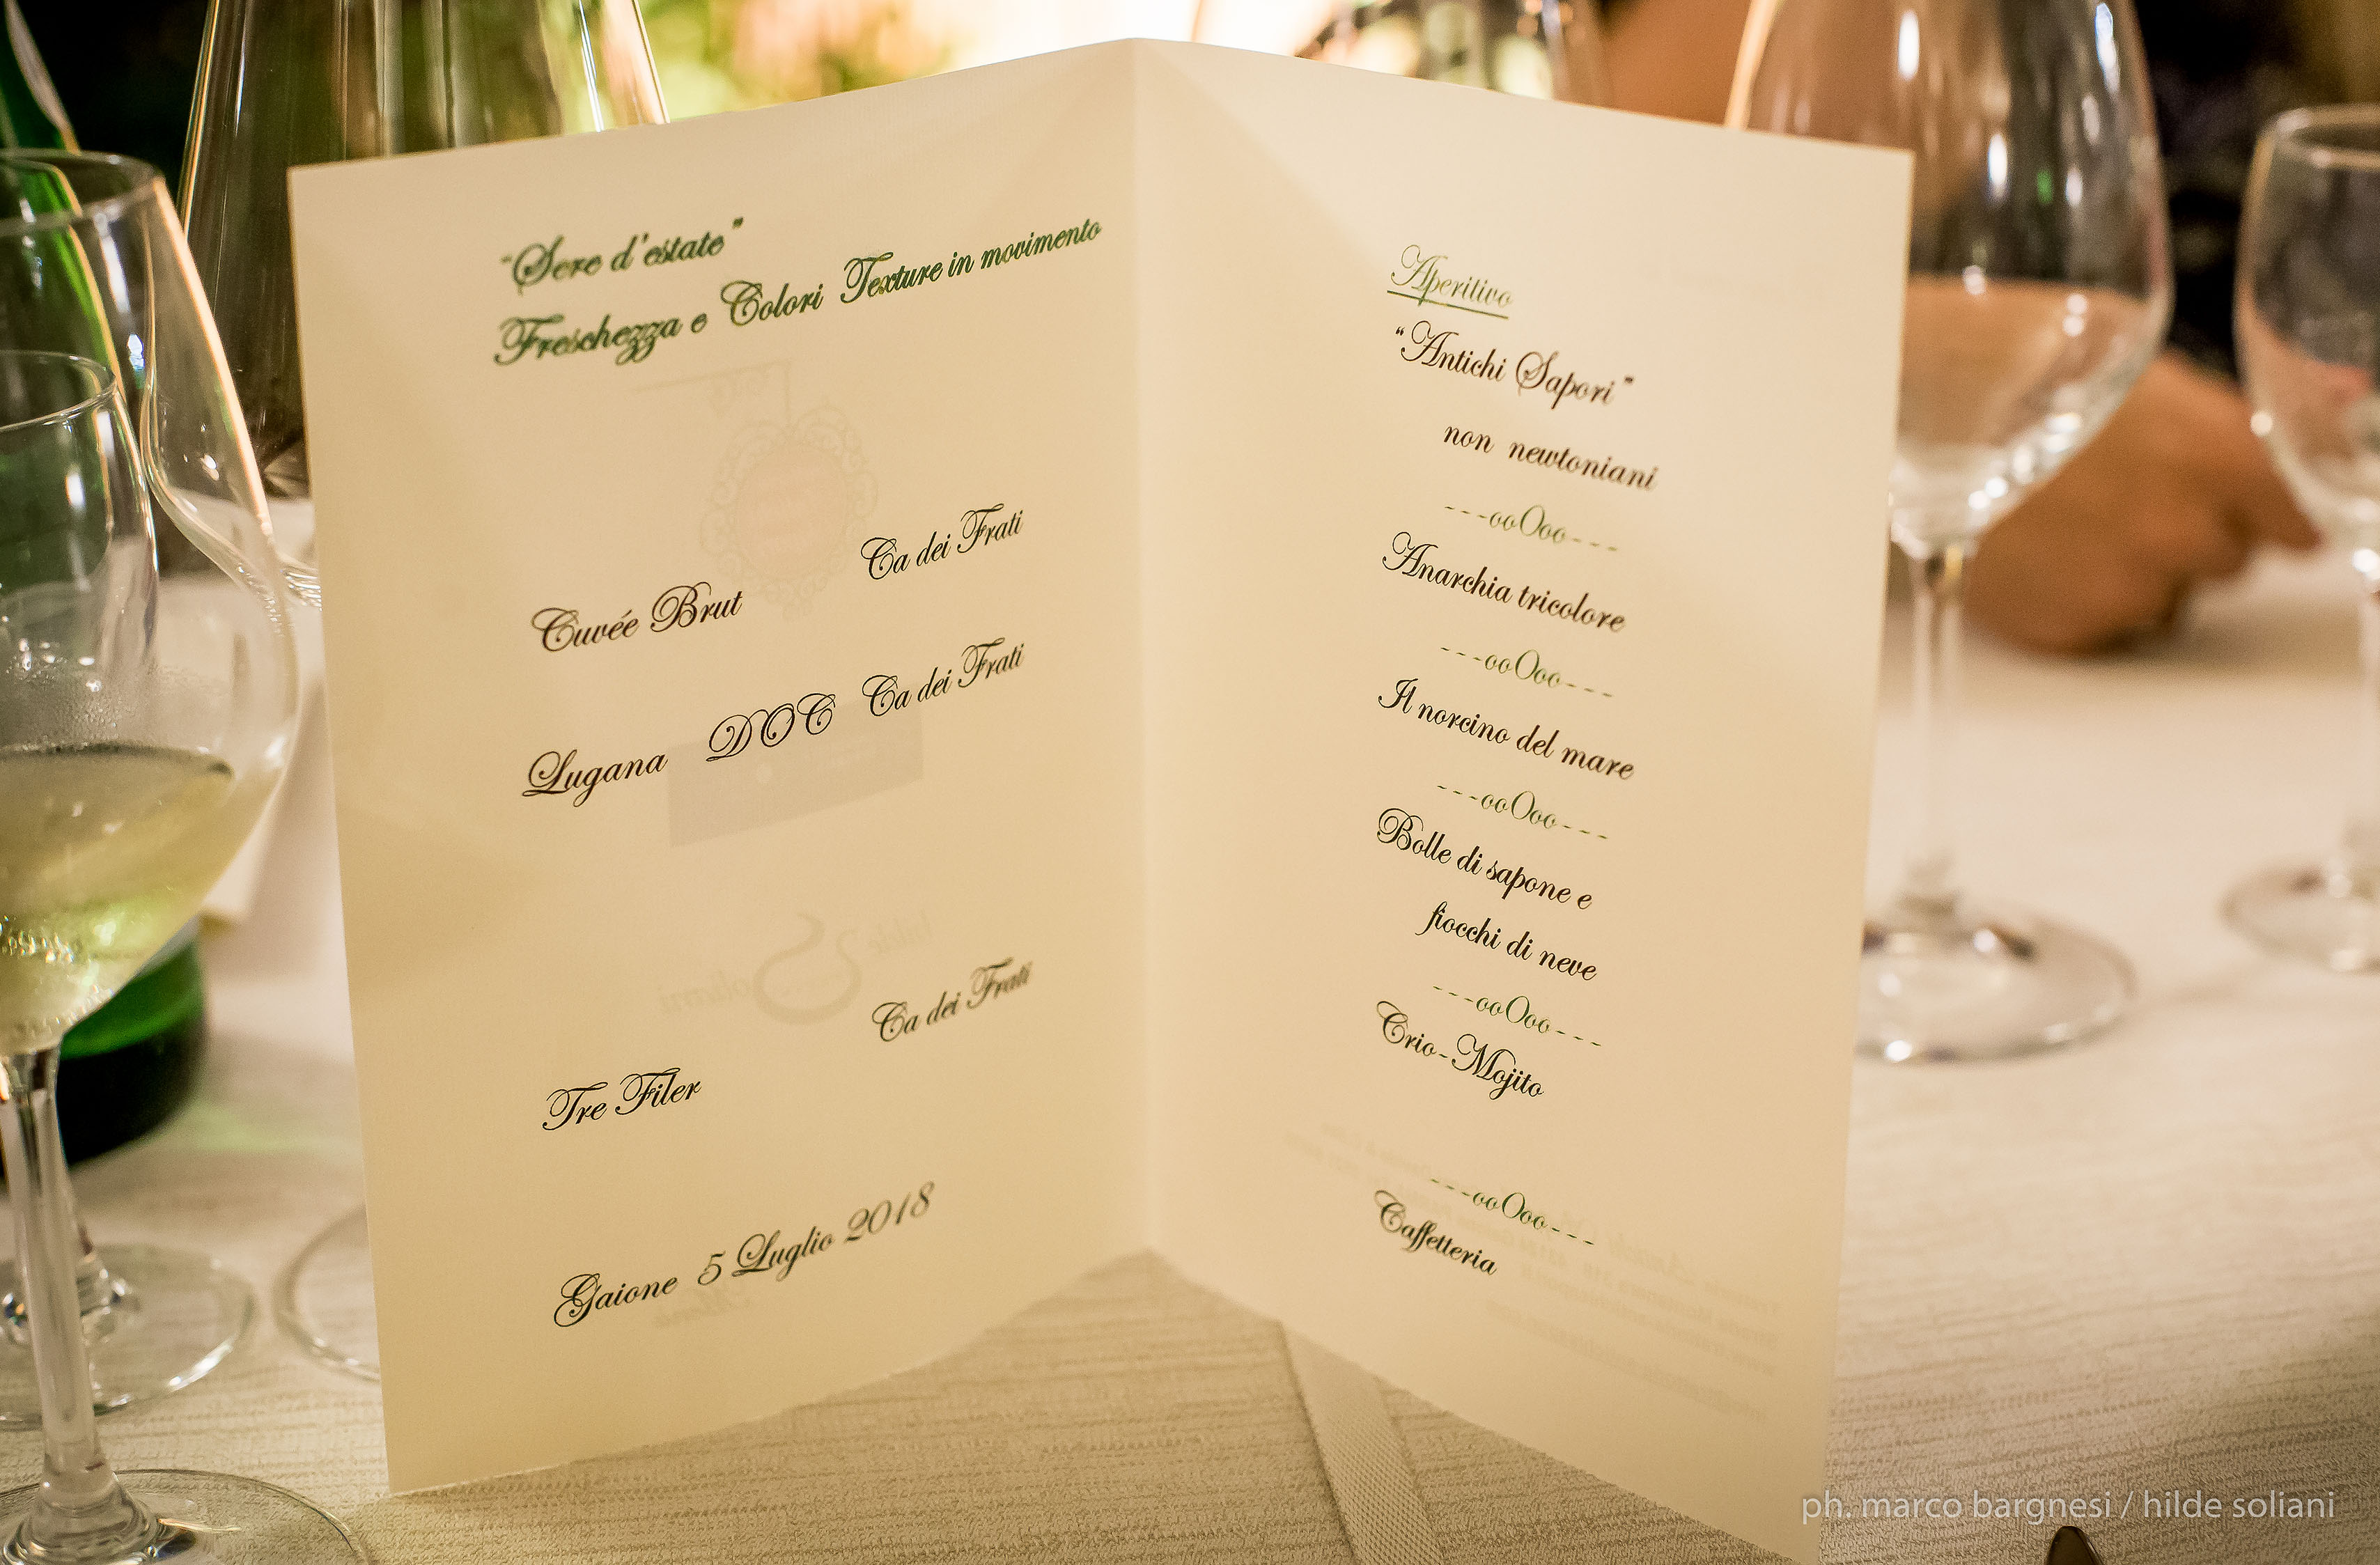 "Sere d'estate"
Freschezza e Colori Texture in movimento
Cuvée Brut Ca dei Frati
Lugana DOC Ca dei Frati
Tre Filer Ca dei Frati
Gaione 5 Luglio 2018
Aperitivo
"Antichi Sapori"
non newtoniani
---ooOoo---
Anarchia tricolore
---ooOoo---
Il norcino del mare
---ooOoo---
Bolle di sapone e
fiocchi di neve
---ooOoo---
Crio-Mojito
---ooOoo---
Caffetteria
hilde
Soliani
ph. marco bargnesi / hilde soliani